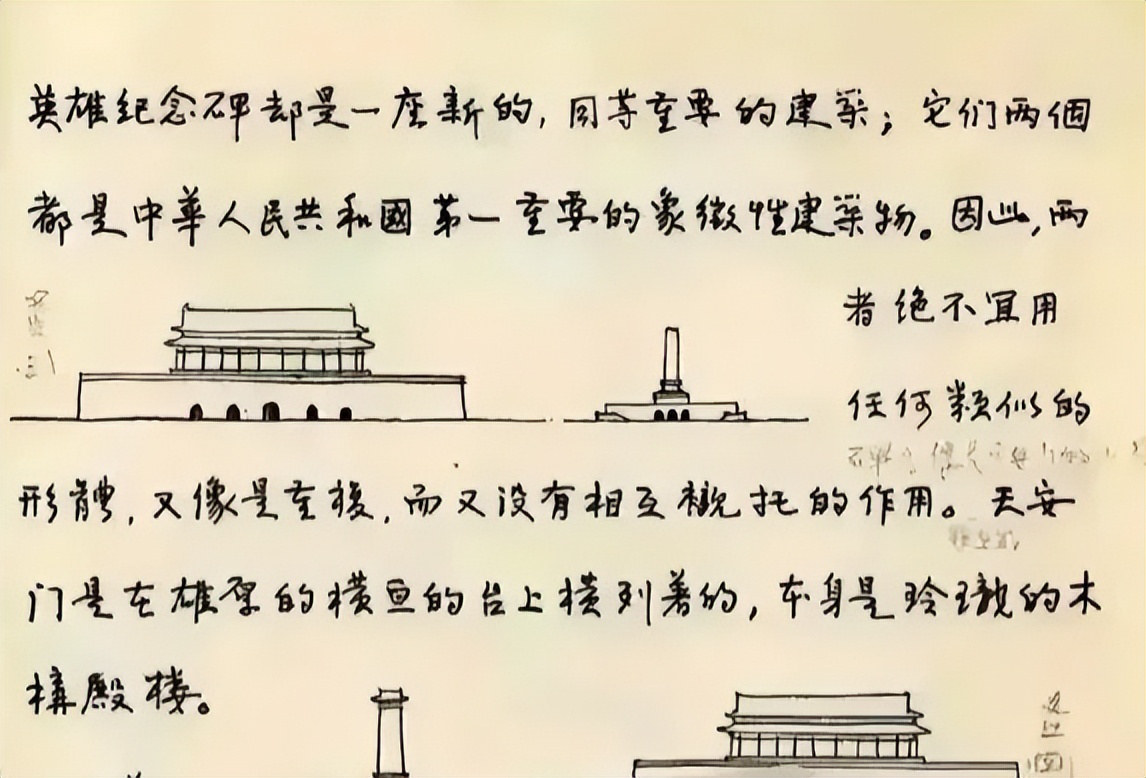 英雄纪念碑却是一座新的，同等重要的建築；它们两個
都是中華人民共和國第一重要的象徵性建築物。因此，两
者绝不宜用
任何類似的
形體，又像是重複，而又没有相互襯托的作用。天安
门是在雄厚的横亘的台上横列着的，本身是玲瓏的木
構殿楼。